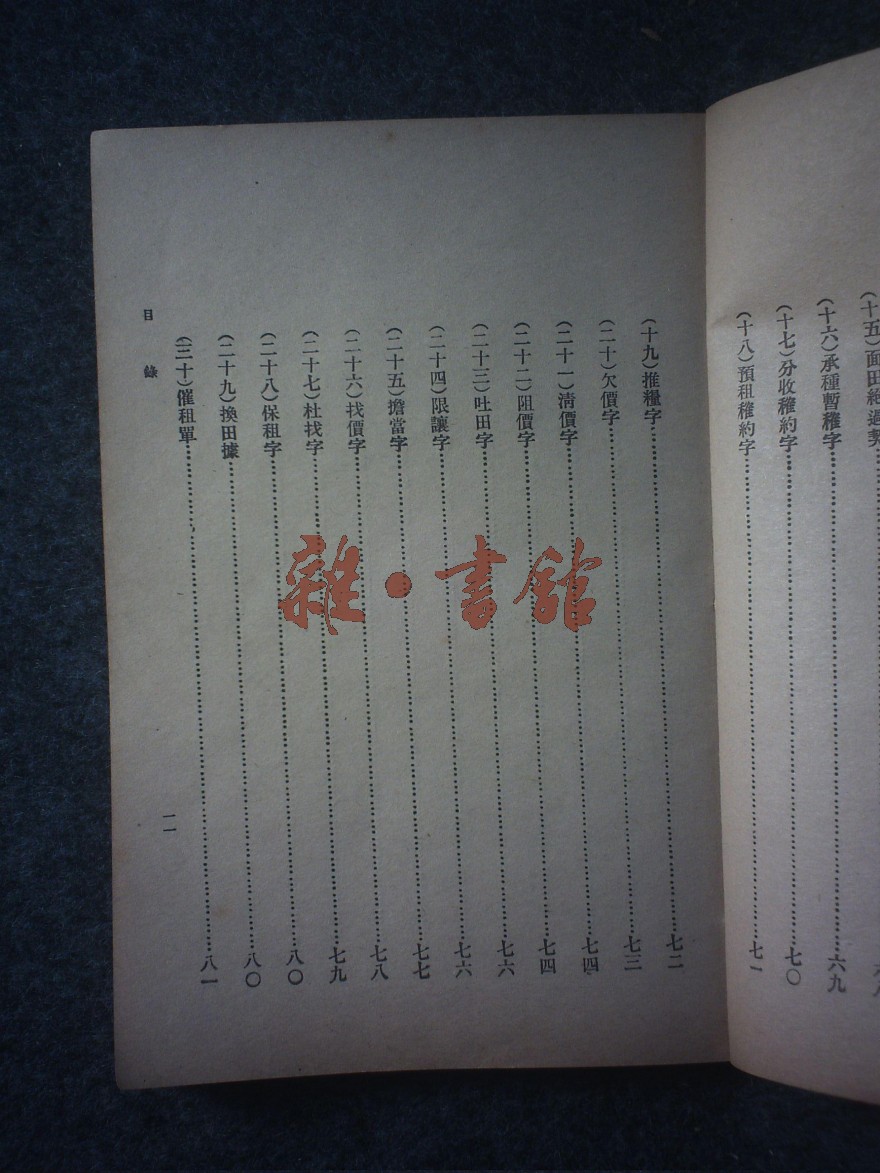 (十五)面田絕過契
(十六)承種暫䆉字……六九
(十七)分收䆉約字……七〇
(十八)預租䆉約字……七一
(十九)推糧字……七二
(二十)欠價字……七三
(二十一)清價字……七四
(二十二)阻價字……七四
(二十三)吐田字……七六
(二十四)限讓字……七六
(二十五)擔當字……七七
(二十六)找價字……七八
(二十七)杜找字……七九
(二十八)保租字……八〇
(二十九)換田據……八〇
(三十)催租單……八一
目錄
二
雜·書館